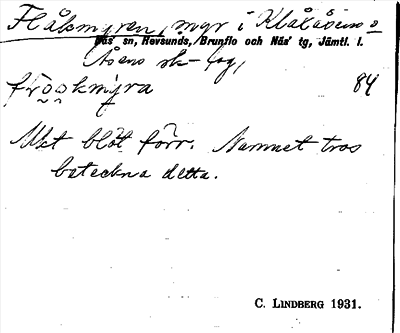 Flåkmyren, myr i Klåkåsens o
Näs sn, Hovsunds, Brunflo och Näs' tg, Jämtl. l.
Åsens sk-lag,
84
Mkt blöt förr. Namnet tros
beteckna detta.
C. LINDBERG 1931.